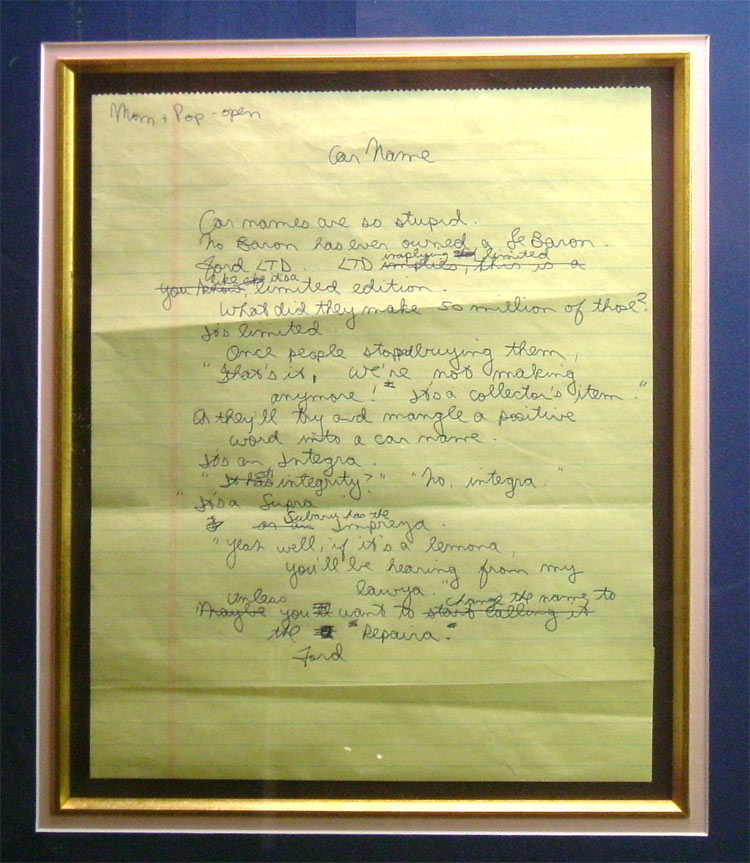 Mom + Pop - open
Car Name
Car names are so stupid.
No Baron has ever owned a Le Baron.
implying limited
Ford LTD. LTD implies, this is a
like it's a
you know, limited edition.
What did they make 50 million of those?
It's limited.
Once people stopped buying them,
"that's it, we're not making
anymore!" It's a collector's item."
Or they'll try and mangle a positive
word into a car name.
It's an Integra.
oh
"It has integrity?" "No, integra."
"It's a Supra"
Subaru has the
or an Impreza.
"Yeah well, if it's a lemona,
you'll be hearing from my
lawya."
unless change the name to
Maybe you want to start calling it
the "Repaira."
Ford